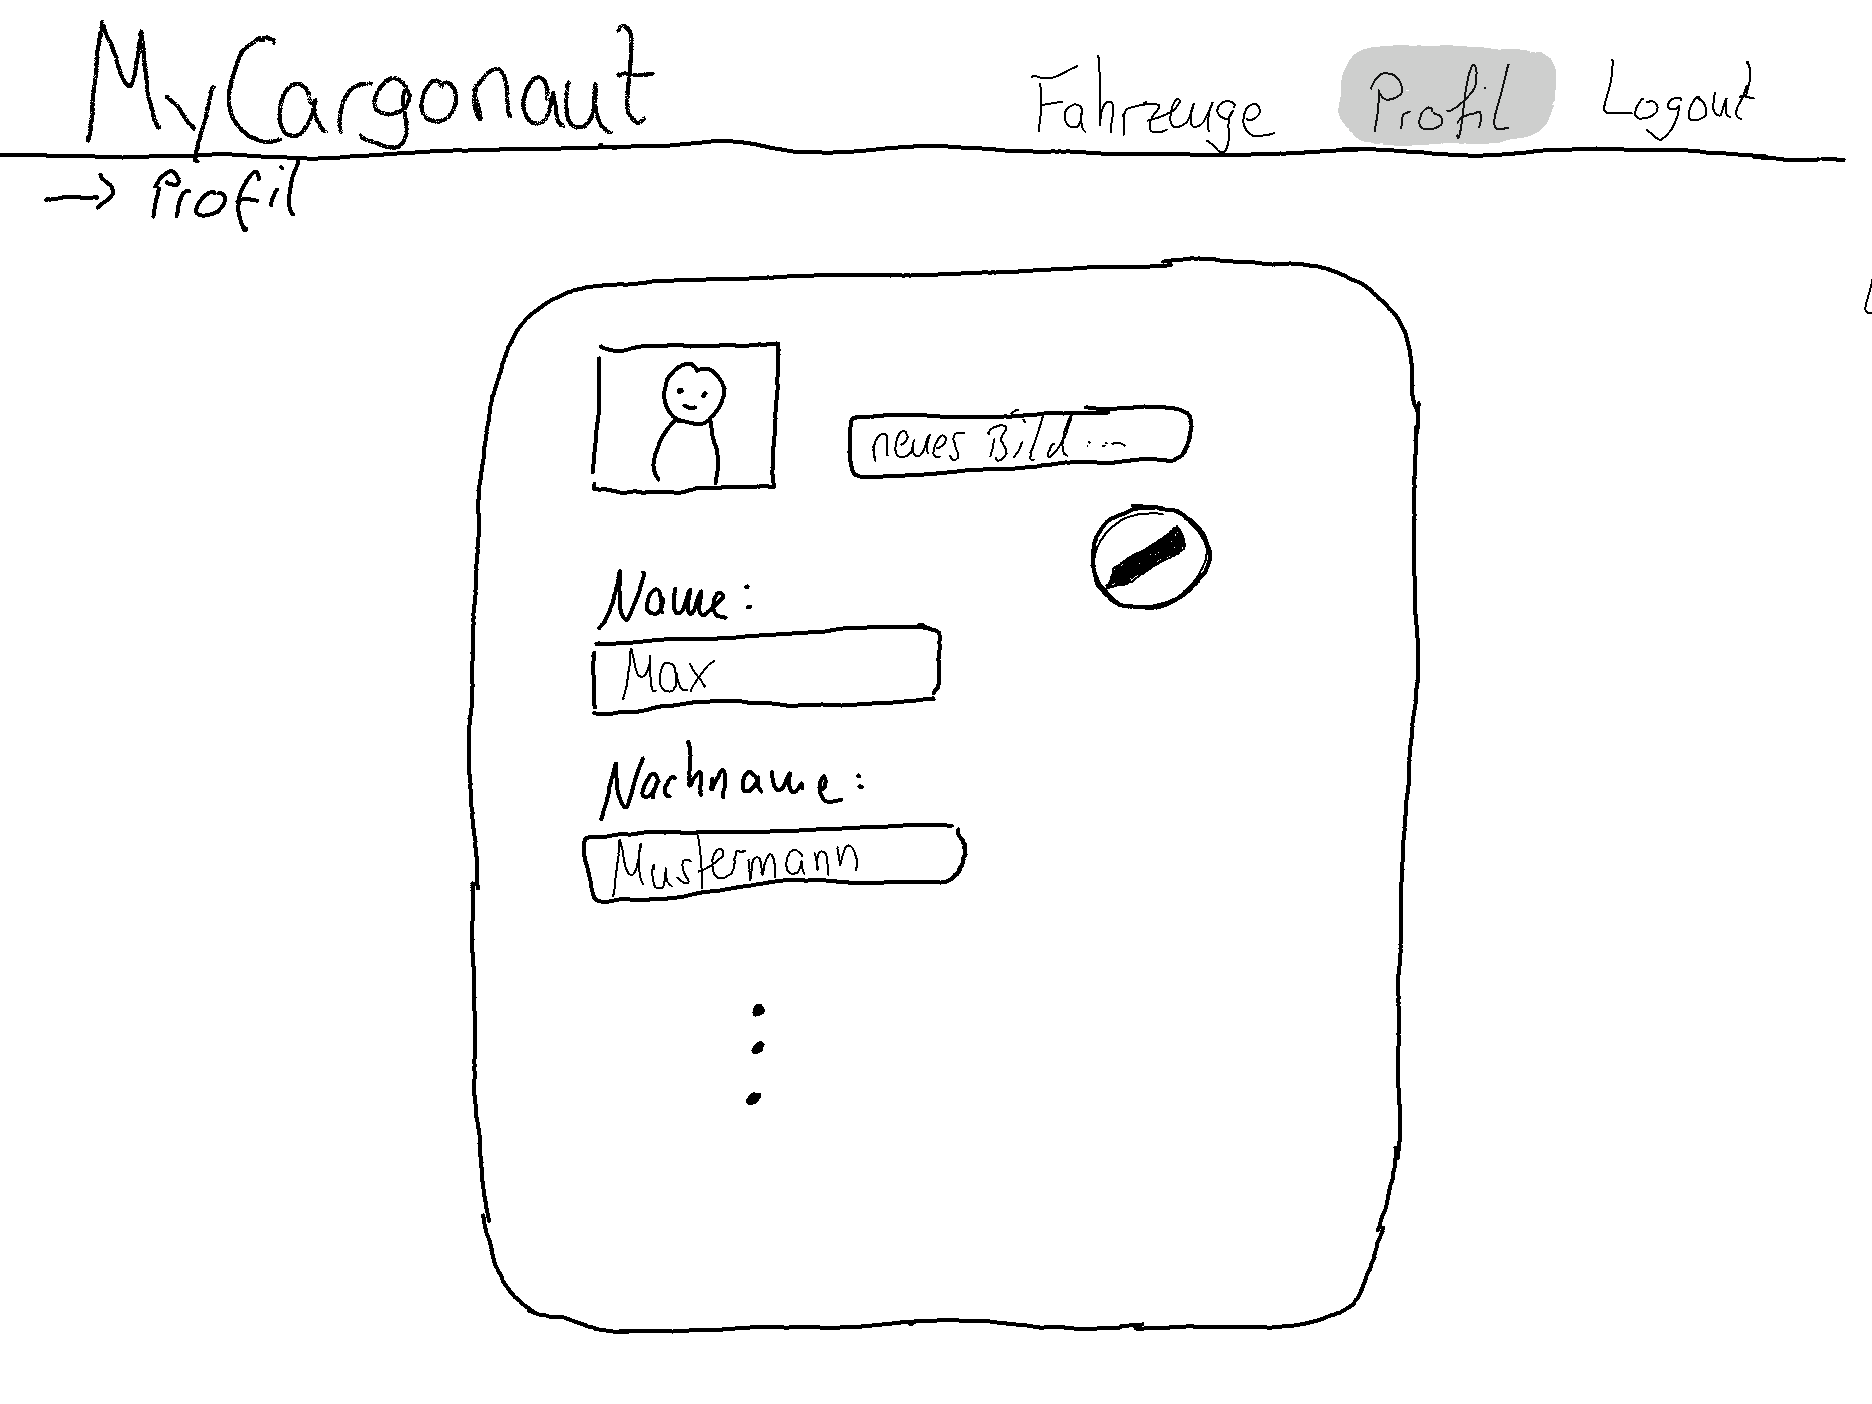 MyCargonaut
Fahrzeuge Profil Logout
→ Profil
neues Bild...
Name:
Max
Nachname:
Mustermann